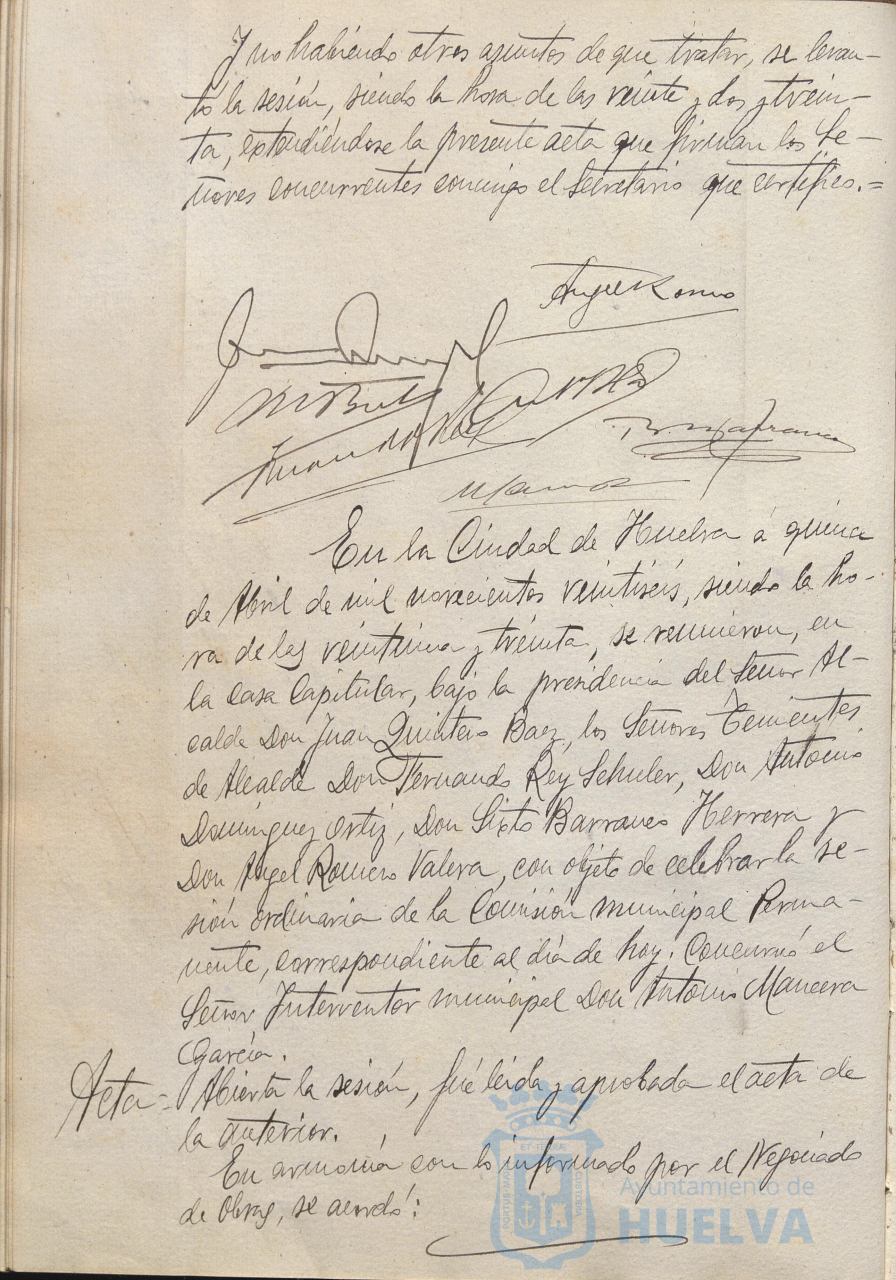 Y no habiendo otros asuntos de que tratar, se levan-
tó la sesión, siendo la hora de las veinte y dos y trein-
ta, extendiéndose la presente acta que firman los Se-
ñores concurrentes conmigo el Secretario que certifico.=
Angel Romero
En la Ciudad de Huelva á quince
de Abril de mil novecientos veintiseis, siendo la ho-
ra de las veintiuna y treinta, se reunieron, en
la Casa Capitular, bajo la presidencia del Señor Al-
calde Don Juan Quintero Baez, los Señores Tenientes
de Alcalde Don Fernando Rey Schuler, Don Antonio
Dominguez Ortiz, Don Sixto Barranco Herrera y
Don Angel Romero Valera, con objeto de celebrar la se-
sión ordinaria de la Comisión municipal Perma-
nente, correspondiente al día de hoy. Concurrió el
Señor Interventor municipal Don Antonio Mancera
García.
Acta= Abierta la sesión, fué leida y aprobada el acta de
la anterior.
En armonía con lo informado por el Negociado
de Obras, se acordó:
Ayuntamiento de
HUELVA